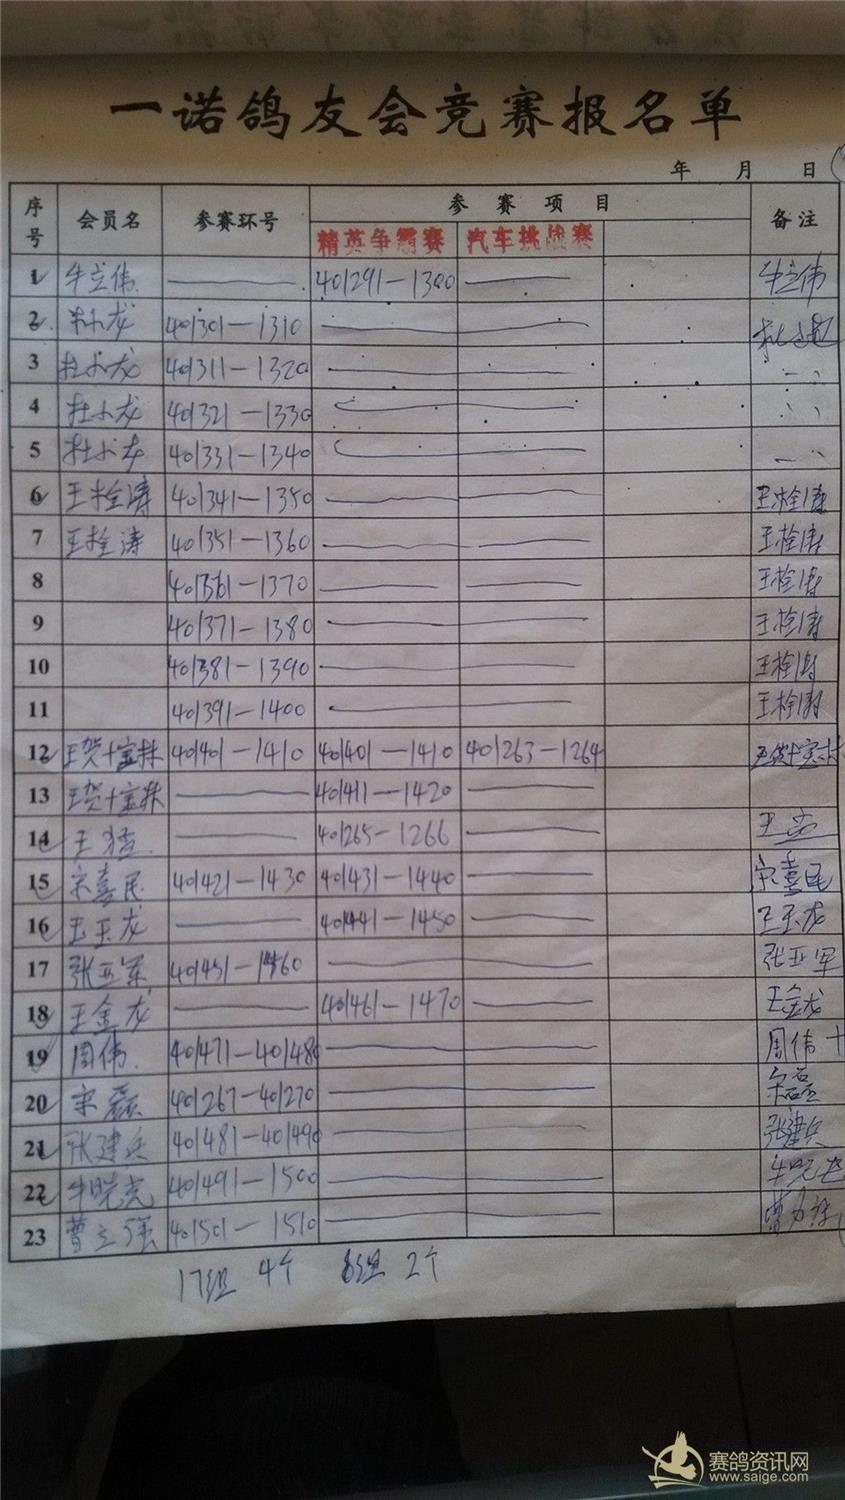 一诺鸽友会竞赛报名单
年 月 日
序号 会员名 参赛环号 参赛项目 备注
精英争霸赛 汽车挑战赛
1 牛立伟 401291—1300 牛立伟
2 杜小龙 401301—1310
3 杜小龙 401311—1320
4 杜小龙 401321—1330
5 杜小龙 401331—1340
6 王栓涛 401341—1350 王栓涛
7 王栓涛 401351—1360 王栓涛
8 401361—1370 王栓涛
9 401371—1380 王栓涛
10 401381—1390 王栓涛
11 401391—1400 王栓涛
12 王贺+宝林 401401—1410 401401—1410 401263—1264 王贺+宝林
13 王贺+宝林 401411—1420
14 王猛 401265—1266 王孟
15 宋喜民 401421—1430 401431—1440 宋喜民
16 王玉龙 401441—1450 王玉龙
17 张亚军 401451—1460 张亚军
18 王金龙 401461—1470 王金龙
19 周伟 401471—401480 周伟
20 宋磊 401267—401270 宋磊
21 张建兵 401481—401490 张建兵
22 牛晓亮 401491—1500
23 曹立强 401501—1510
17组 4个 8组 2个
赛鸽资讯网
www.saige.com